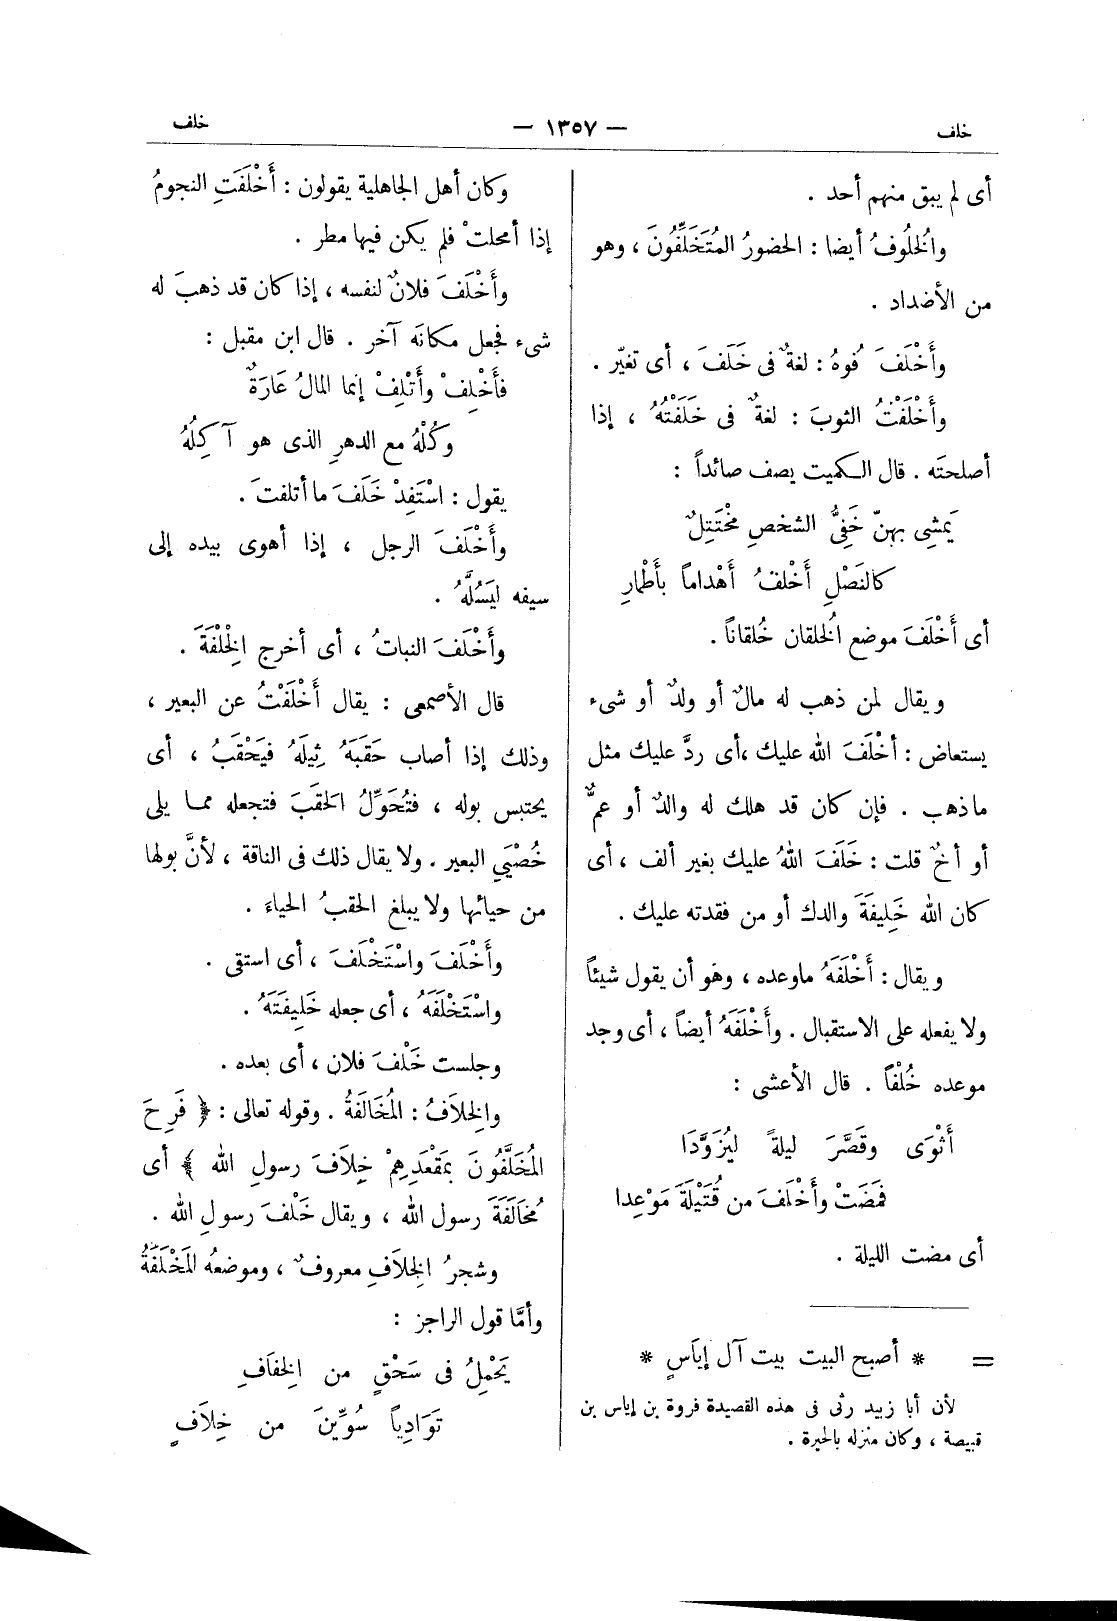 خلف
— ١٣٥٧ —
خلف
أى لم يبق منهم أحد .
والُخلُوفُ أيضا : الحضورُ المُتَخَلِّفُونَ ، وهو
من الأضداد .
وأَخْلَفَ فُوهُ : لغةٌ فى خَلَفَ ، أى تغيّر .
وأَخْلَفْتُ الثوبَ : لغةٌ فى خَلَفْتُهُ ، إذا
أصلحتَه . قال الكميت يصف صائداً :
يَمشِى بهنّ خَفِىُّ الشخصِ مُخْتَتِلٌ
كالنَصْلِ أَخْلفُ أَهْداماً بأَطْمارِ
أى أَخْلَفَ موضع الُخلقان خُلقاناً .
ويقال لمن ذهب له مالٌ أو ولدٌ أو شىء
يستعاض : أخْلَفَ الله عليك ، أى ردَّ عليك مثل
ما ذهب . فإن كان قد هلك له والدٌ أو عمٌّ
أو أخٌ قلت : خَلَفَ اللهُ عليك بغير ألف ، أى
كان الله خَلِيفَةَ والدك أو من فقدته عليك .
ويقال : أَخْلَفَهُ ماوعده ، وهو أن يقول شيئاً
ولا يفعله على الاستقبال . وأَخْلَفَهُ أيضاً ، أى وجد
موعده خُلْفاً . قال الأعشى :
أَثْوَى وقَصَّرَ ليلةً ليُزَوَّدَا
فمَضَتْ وأَخْلَفَ من قُتَيْلَةَ مَوْعِدا
أى مضت الليلة .
= * أصبح البيت بيت آل إياَسٍ *
لأن أبا زبيد رثى فى هذه القصيدة فروة بن إياس بن
قبيصة ، وكان منزله بالحيرة .
وكان أهل الجاهلية يقولون : أَخْلَفَتِ النجومُ
إذا أمحلتْ فلم يكن فيها مطر .
وأَخْلَفَ فلانٌ لنفسه ، إذا كان قد ذهبَ له
شىء فجعل مكانَه آخر . قال ابن مقبل :
فأَخْلِفْ وأَتْلِفْ إنما المالُ عَارَةٌ
وكُلْهُ مع الدهرِ الذى هو آكِلُهْ
يقول : اسْتَفِدْ خَلَفَ ما أتلفتَ .
وأَخْلَفَ الرجل ، إذا أهوى بيده إلى
سيفه ليَسُلَّهُ .
وأَخْلَفَ النباتُ ، أى أخرج الِخْلْفَةَ .
قال الأصمعى : يقال أَخْلَفْتُ عن البعير ،
وذلك إذا أصاب حَقَبَهُ ثِيلَهُ فيَحْقَبُ ، أى
يحتبس بوله ، فتُحَوِّلُ الَحقَبَ فتجعله مما يلى
خُصْيَىِ البعير . ولا يقال ذلك فى الناقة ، لأنَّ بولها
من حيائها ولا يبلغ الحقبُ الحياءَ .
وأَخْلَفَ واسْتَخْلَفَ ، أى استقى .
واسْتَخْلَفَهُ ، أى جعله خَلِيفَتَهُ .
وجلست خَلْفَ فلان ، أى بعده .
والِخلاَفُ : المُخَالَفَةُ . وقوله تعالى : ﴿ فَرِحَ
المُخَلَّفُونَ بمَقْعَدِهِمْ خِلاَفَ رسولِ الله ﴾ أى
مُخَالَفَةَ رسول الله ، ويقال خَلْفَ رسولِ الله .
وشجرُ الِخلاَفِ معروفٌ ، وموضعُه المَخْلَفَةُ
وأمَّا قول الراجز :
يَحْمِلُ فى سَحْقٍ من الِخفاَفِ
تَوَادِياً سُوِّينَ من خِلاَفِ